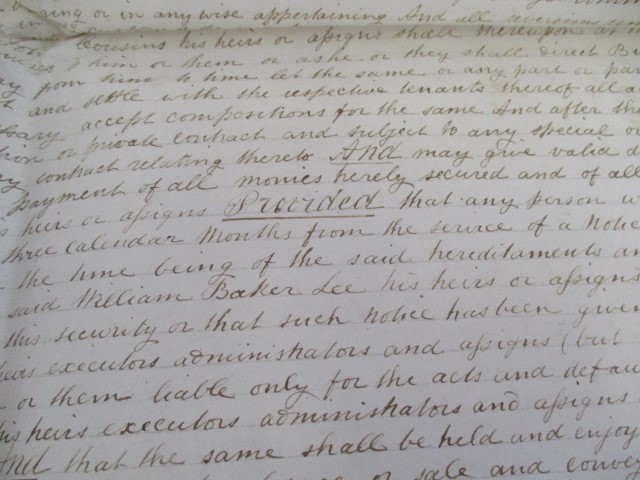 ing or in any wise appertaining And all reversions
Cousins his heirs or assigns shall thereupon
him or them or as he or they shall direct
from time to time let the same or any part or
and settle with the respective tenants thereof all
accept compositions for the same And after
or private contract and subject to any special or
contract relating thereto And may give valid
payment of all monies hereby secured and of all
heirs or assigns Provided that any person
three Calendar Months from the service of a Notice
the time being of the said hereditaments
said William Baker Lee his heirs or assigns
this security or that such Notice has been given
heirs executors administrators and assigns (but
or them liable only for the acts and
his heirs executors administrators and assigns
And that the same shall be held and enjoy
or sale and convey